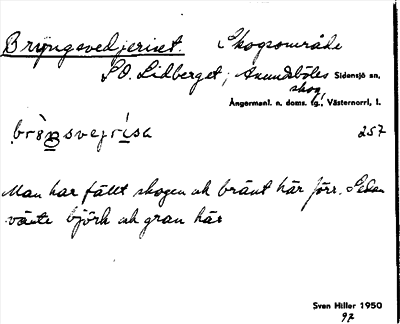 Bryngsvedjeriset. Skogsområde
S.O. Lidberget; Anundsböles Sidensjö sn,
skog,
Ångermanl. n. doms. fg., Västernorrl. l.
257
Man har fällt skogen ock bränt här förr. Sedan
växte björk ock gran här
Sven Hiller 1950
97